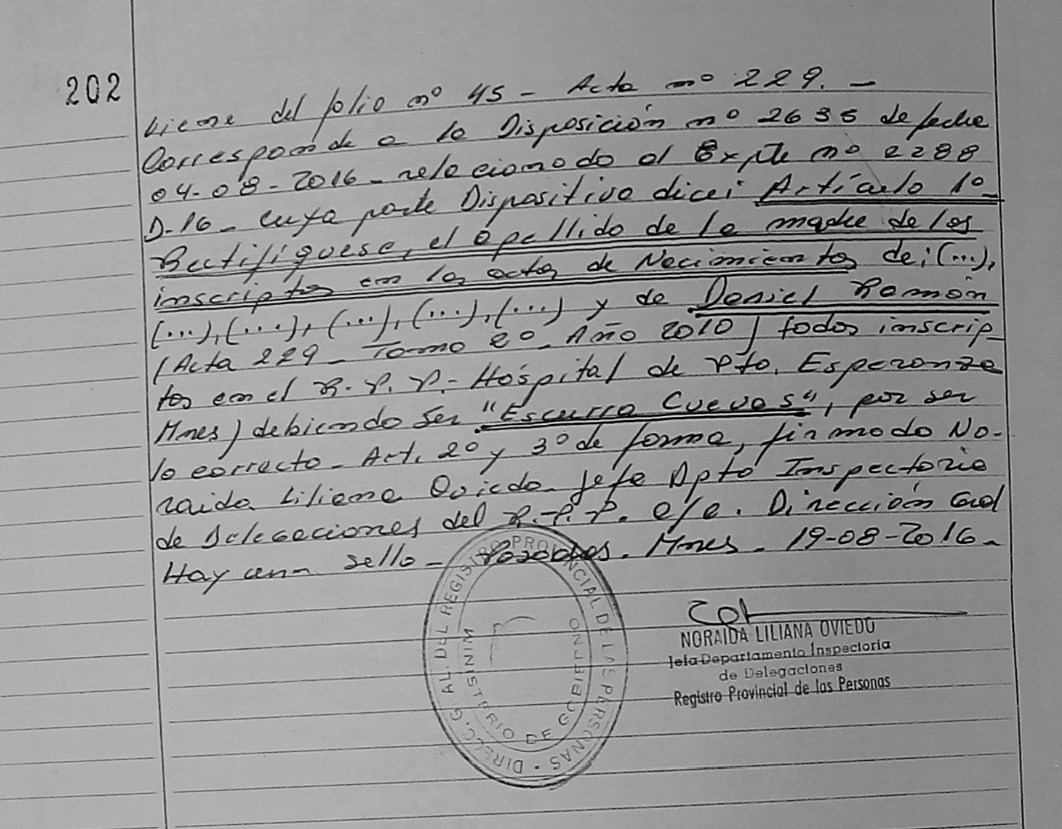 202
Viene del folio nº 45 - Acta nº 229. -
Corresponde a la Disposición nº 2635 de fecha
04-08-2016 - relacionado al Expte nº 2288
D-16 - cuya parte Dispositiva dice: Artículo 1º -
Rectifíquese, el apellido de la madre de los
inscriptos en las actas de Nacimientos de: (...),
(...), (...), (...), (...), (...) y de Daniel Ramón
(Acta 229 - Tomo 2º - Año 2010) todos inscrip-
tos en el R.P.P. - Hospital de Pto. Esperanza
Mnes) debiendo ser "Escurra Cuevas", por ser
lo correcto - Art. 2º y 3º de forma, firmado No-
raida Liliana Oviedo Jefe Dpto Inspectoria
de Delegaciones del R.P.P. a/c. Dirección Gral
Hay un sello - Posadas. Mnes. 19-08-2016 -
DIREC. GRAL. DEL REGISTRO PROVINCIAL DE LAS PERSONAS
MINISTERIO DE GOBIERNO
NORAIDA LILIANA OVIEDO
Jefa Departamento Inspectoría
de Delegaciones
Registro Provincial de las Personas